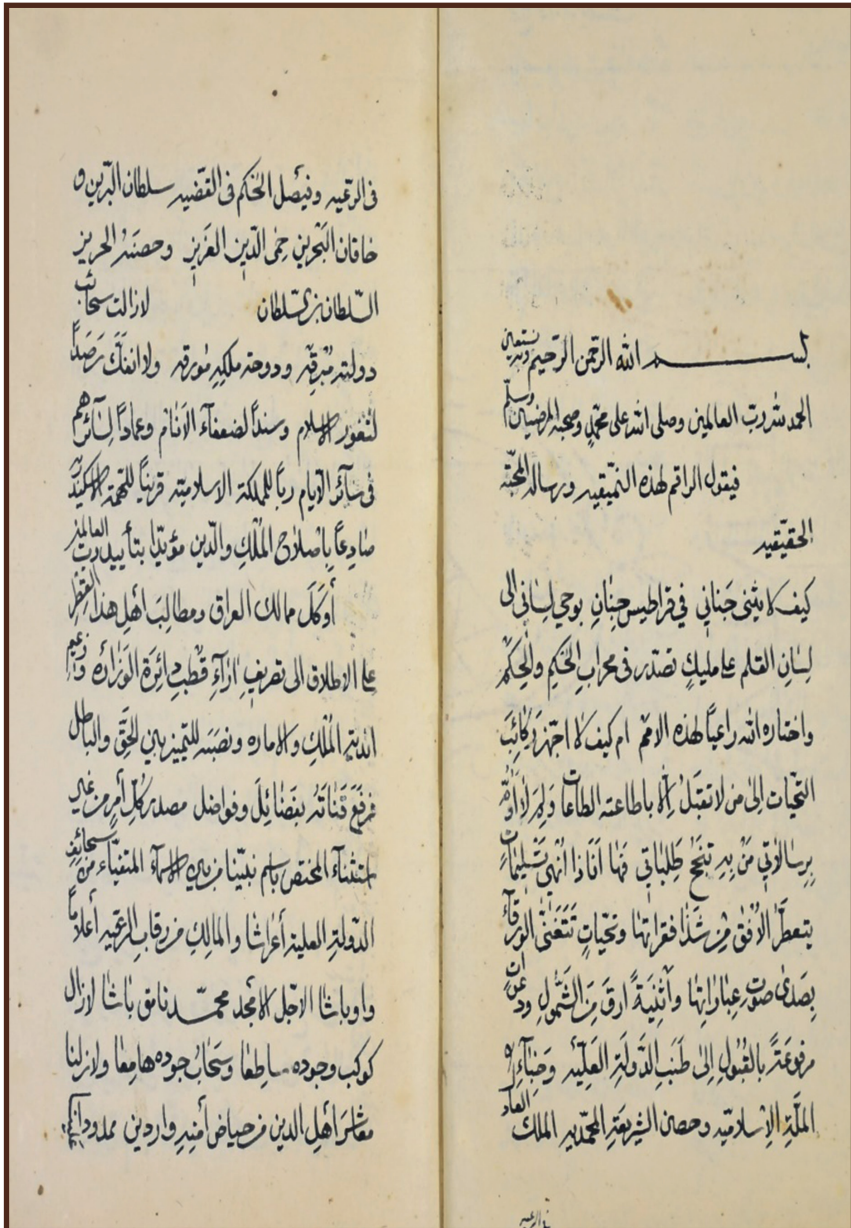 بسم الله الرحمن الرحيم وبه نستعين
الحمد لله رب العالمين وصلى الله على محمد وصحبه المرضيين وسلم
فيقول الراقم لهذه النميقه ورسالة المحبة
الحقيقيه
كيف لا يثني جَناني في قراطيس جِنانِ بوحي لساني الى
لِسانِ القلم على مليكٍ تصدّر في محراب الحُكمِ والحِكَم
واختاره الله راعياً لهذه الامم ام كيف لا اجهز كتائِبَ
التحيات الى من لا تقبَل إلا باطاعته الطاعات ولِمَ لا
برسالاتي مَنْ بِيدِ تنجح طلباتي فها انا ذا انهي تسليمات
يتعطر الافق مِن شذا فقراتها وتحياتٍ تتغنى الورقآء
بِصدى صوتِ عِباراتِها وأثنيةً ارقَ مِنَ الشَّمُولِ ودعوات
مرفوعةً بالقبُولِ إلى طنب الدَّولةِ العَليّه وخبآء
الملّةِ الإسلاميه وحصن الشريعةِ المحمديه الملك العادل
في الرعيه
في الرعيه وفيصل الحُكم في القضيه سلطان البرين و
خاقان البحرين حِمى الدين العزيز وحصنه الحريز
السّلطان بن السّلطان لازالت سحائب
دولته مبرقه ودوحة ملكِهِ مورقه ولا انفك رَصَداً
لثغور الاسلام وسنداً لضعفآء الأنام وعماداً لسائرهم
في سآئر الأيام ربّاً للمملكة الاسلاميه قريناً للهمة
صادعاً بإصلاح المُلكِ والدين مؤيداً بتأييد رب العالمين
أوكَلَ ممالك العراق ومطالبَ اهل هذا القطر
على الاطلاق الى تصريفِ ارآءِ قطب دائرة الوزاره وزعيم
اندية المُلكِ والاماره ونصَبَه للتميز بين الحق والباطل
فرفع قناتَه بفضائلَ وفواضل مصدر كل أمر من غير
استثنآء المختص باسم نبينا من بين الاسمآء المتفيّاء من سحائب
الدّولةِ العلية أعراشا والمالِكِ من رقاب الرعيه أعلاماً
واوباشا الاجل الامجد محمّد نامق باشا لازال
كوكب وجوده ساطعا وسحابُ جوده هامعا ولازلنا
معاشرَ أهل الدين من حياض أمنِهِ واردين